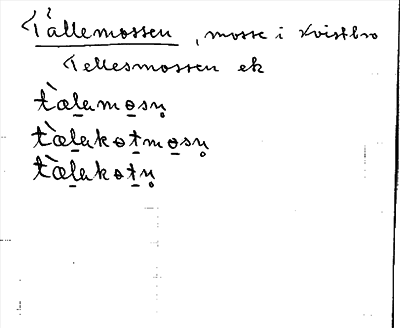 Tällemossen, mosse i Kvistbro
Tellesmossen ek
tæ̀l̲amo̲sn̥
tæ̀l̲akot̲mo̲sn̥
tæ̀l̲akot̲n̥